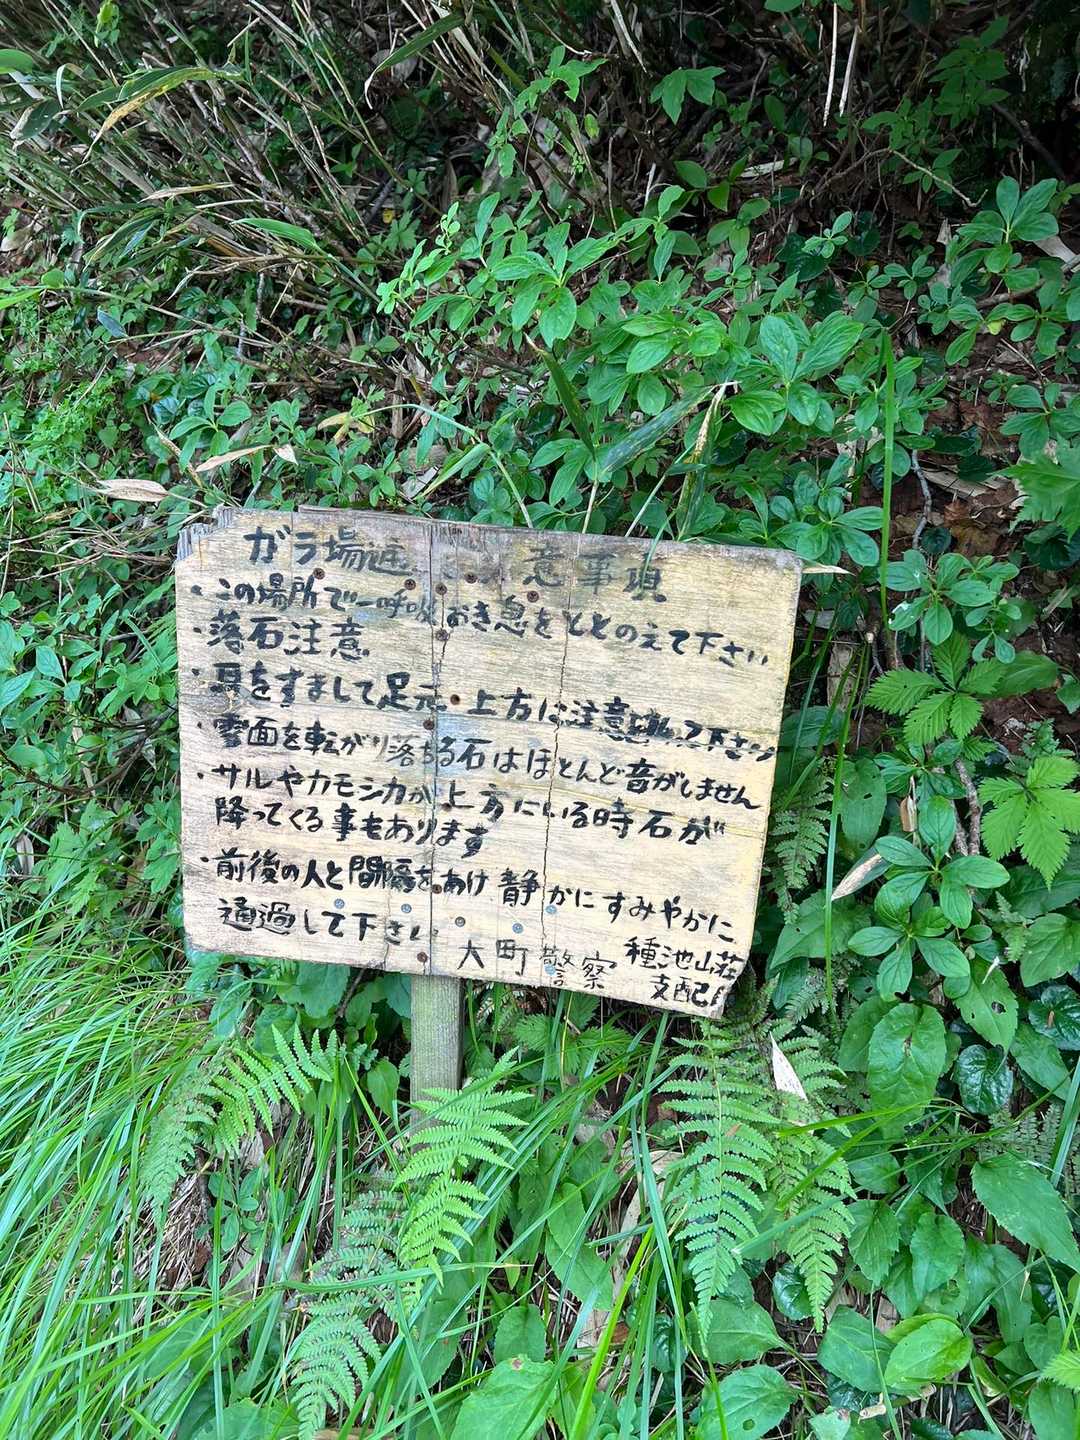 ガラ場通 意事項
・この場所で一呼吸おき息をととのえて下さい
・落石注意
・耳をすまして足元、上方に注意 下さい
・雪面を転がり落ちる石はほとんど音がしません
・サルやカモシカが上方にいる時石が
降ってくる事もあります
・前後の人と間隔をあけ、静かにすみやかに
通過して下さい
大町警察 種池山荘
支配